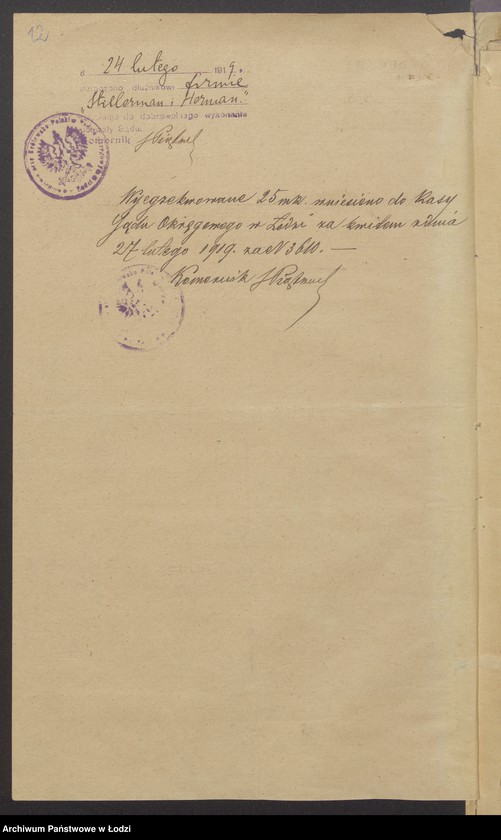 12
d. 24 lutego 1919 r.
doręczono dłużnikowi firmie
"Stillerman i Horman."
do dobrowolnego wykonania
Sądu.
Komornik
Wyegzekwowane 25 mk. wniesiono do Kasy
Sądu Okręgowego w Łodzi za kwitem z dnia
27 lutego 1919. za N 3610. —
Komornik
Archiwum Państwowe w Łodzi